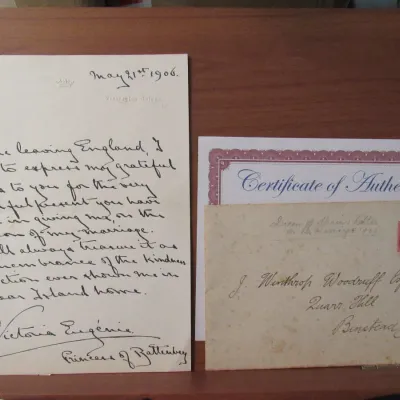 May 21st 1906.
leaving England, I
to express my grateful
to you for this very
present you have
in giving me, on the
of my marriage.
always treasure it as
of the kindness
ever shown me in
Island home.
Victoria Eugénie
Princess of Battenberg
Certificate of Authe
J. Winthrop Woodruff
Quarr Hill
Binstead